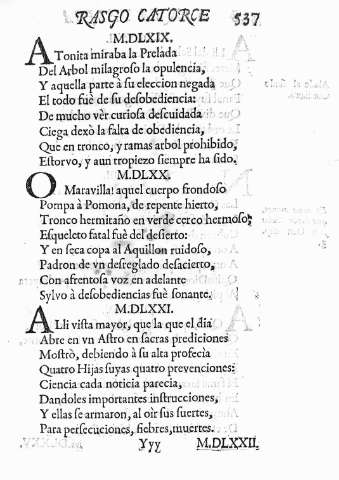 RASGO CATORCE 537
M.DLXIX.
ATonita miraba la Prelada
Del Arbol milagroso la opulencia,
Y aquella parte à su eleccion negada
El todo fuè de su desobediencia:
De mucho vèr curiosa descuidada
Ciega dexò la falta de obediencia,
Que en tronco, y ramas arbol prohibido,
Estorvo, y aun tropiezo siempre ha sido.
M.DLXX.
O Maravilla! aquel cuerpo frondoso
Pompa à Pomona, de repente hierto,
Tronco hermitaño en verde cerco hermoso;
Esqueleto fatal fuè del desierto:
Y en seca copa al Aquillon ruidoso,
Padron de vn desreglado desacierto,
Con afrentosa voz en adelante
Sylvo à desobediencias fuè sonante.
M.DLXXI.
ALli vista mayor, que la que el dia
Abre en vn Astro en sacras prediciones
Mostrò, debiendo à su alta profecia
Quatro Hijas suyas quatro prevenciones:
Ciencia cada noticia parecia,
Dandoles importantes instrucciones,
Y ellas se armaron, al oìr sus suertes,
Para persecuciones, fiebres, muertes.
Yyy M.DLXXII.